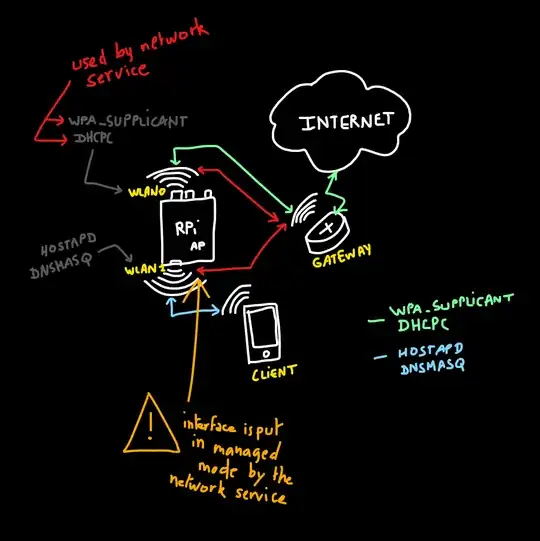 used by network
service
WPA_SUPPLICANT
DHCPC
INTERNET
WLAN0
RPi
AP
HOSTAPD
DNSMASQ
WLAN1
GATEWAY
WPA_SUPPLICANT
DHCPC
HOSTAPD
DNSMASQ
CLIENT
!
interface is put
in managed
mode by the
network service